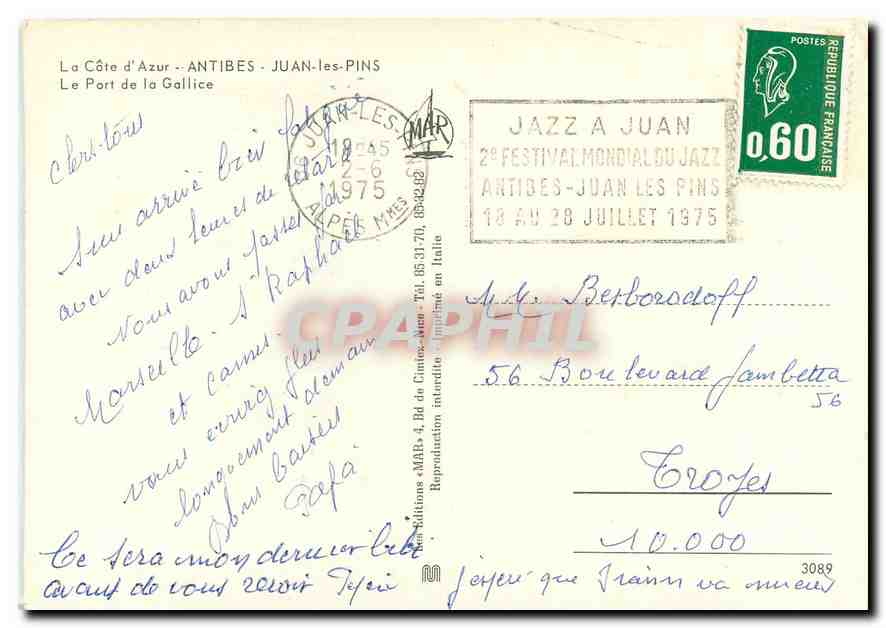 La Côte d'Azur - ANTIBES - JUAN-les-PINS
Le Port de la Gallice
Chers tous
bien arrivé bien fatigué
avec deux heures de retard
Nous avons passé par
Marseille. St Raphaël
et cannes.
vous écrirez plus
longuement demain
Bons baisers
Papa
Ce sera mon dernier
avant de vous revoir
j'espère que va mieux
JUAN-LES-PINS
18-45
2-6
1975
ALPES Mmes
MAR
JAZZ A JUAN
2e FESTIVAL MONDIAL DU JAZZ
ANTIBES-JUAN LES PINS
18 AU 28 JUILLET 1975
POSTES
REPUBLIQUE FRANÇAISE
0,60
Les Editions «MAR» 4, Bd de Cimiez-Nice - Tél. 85 31-70, 85-32.82
Reproduction interdite - Imprimé en Italie
CPAPHIL
Besborodoff
56 Boulevard Gambetta
56
Troyes
10.000
3089